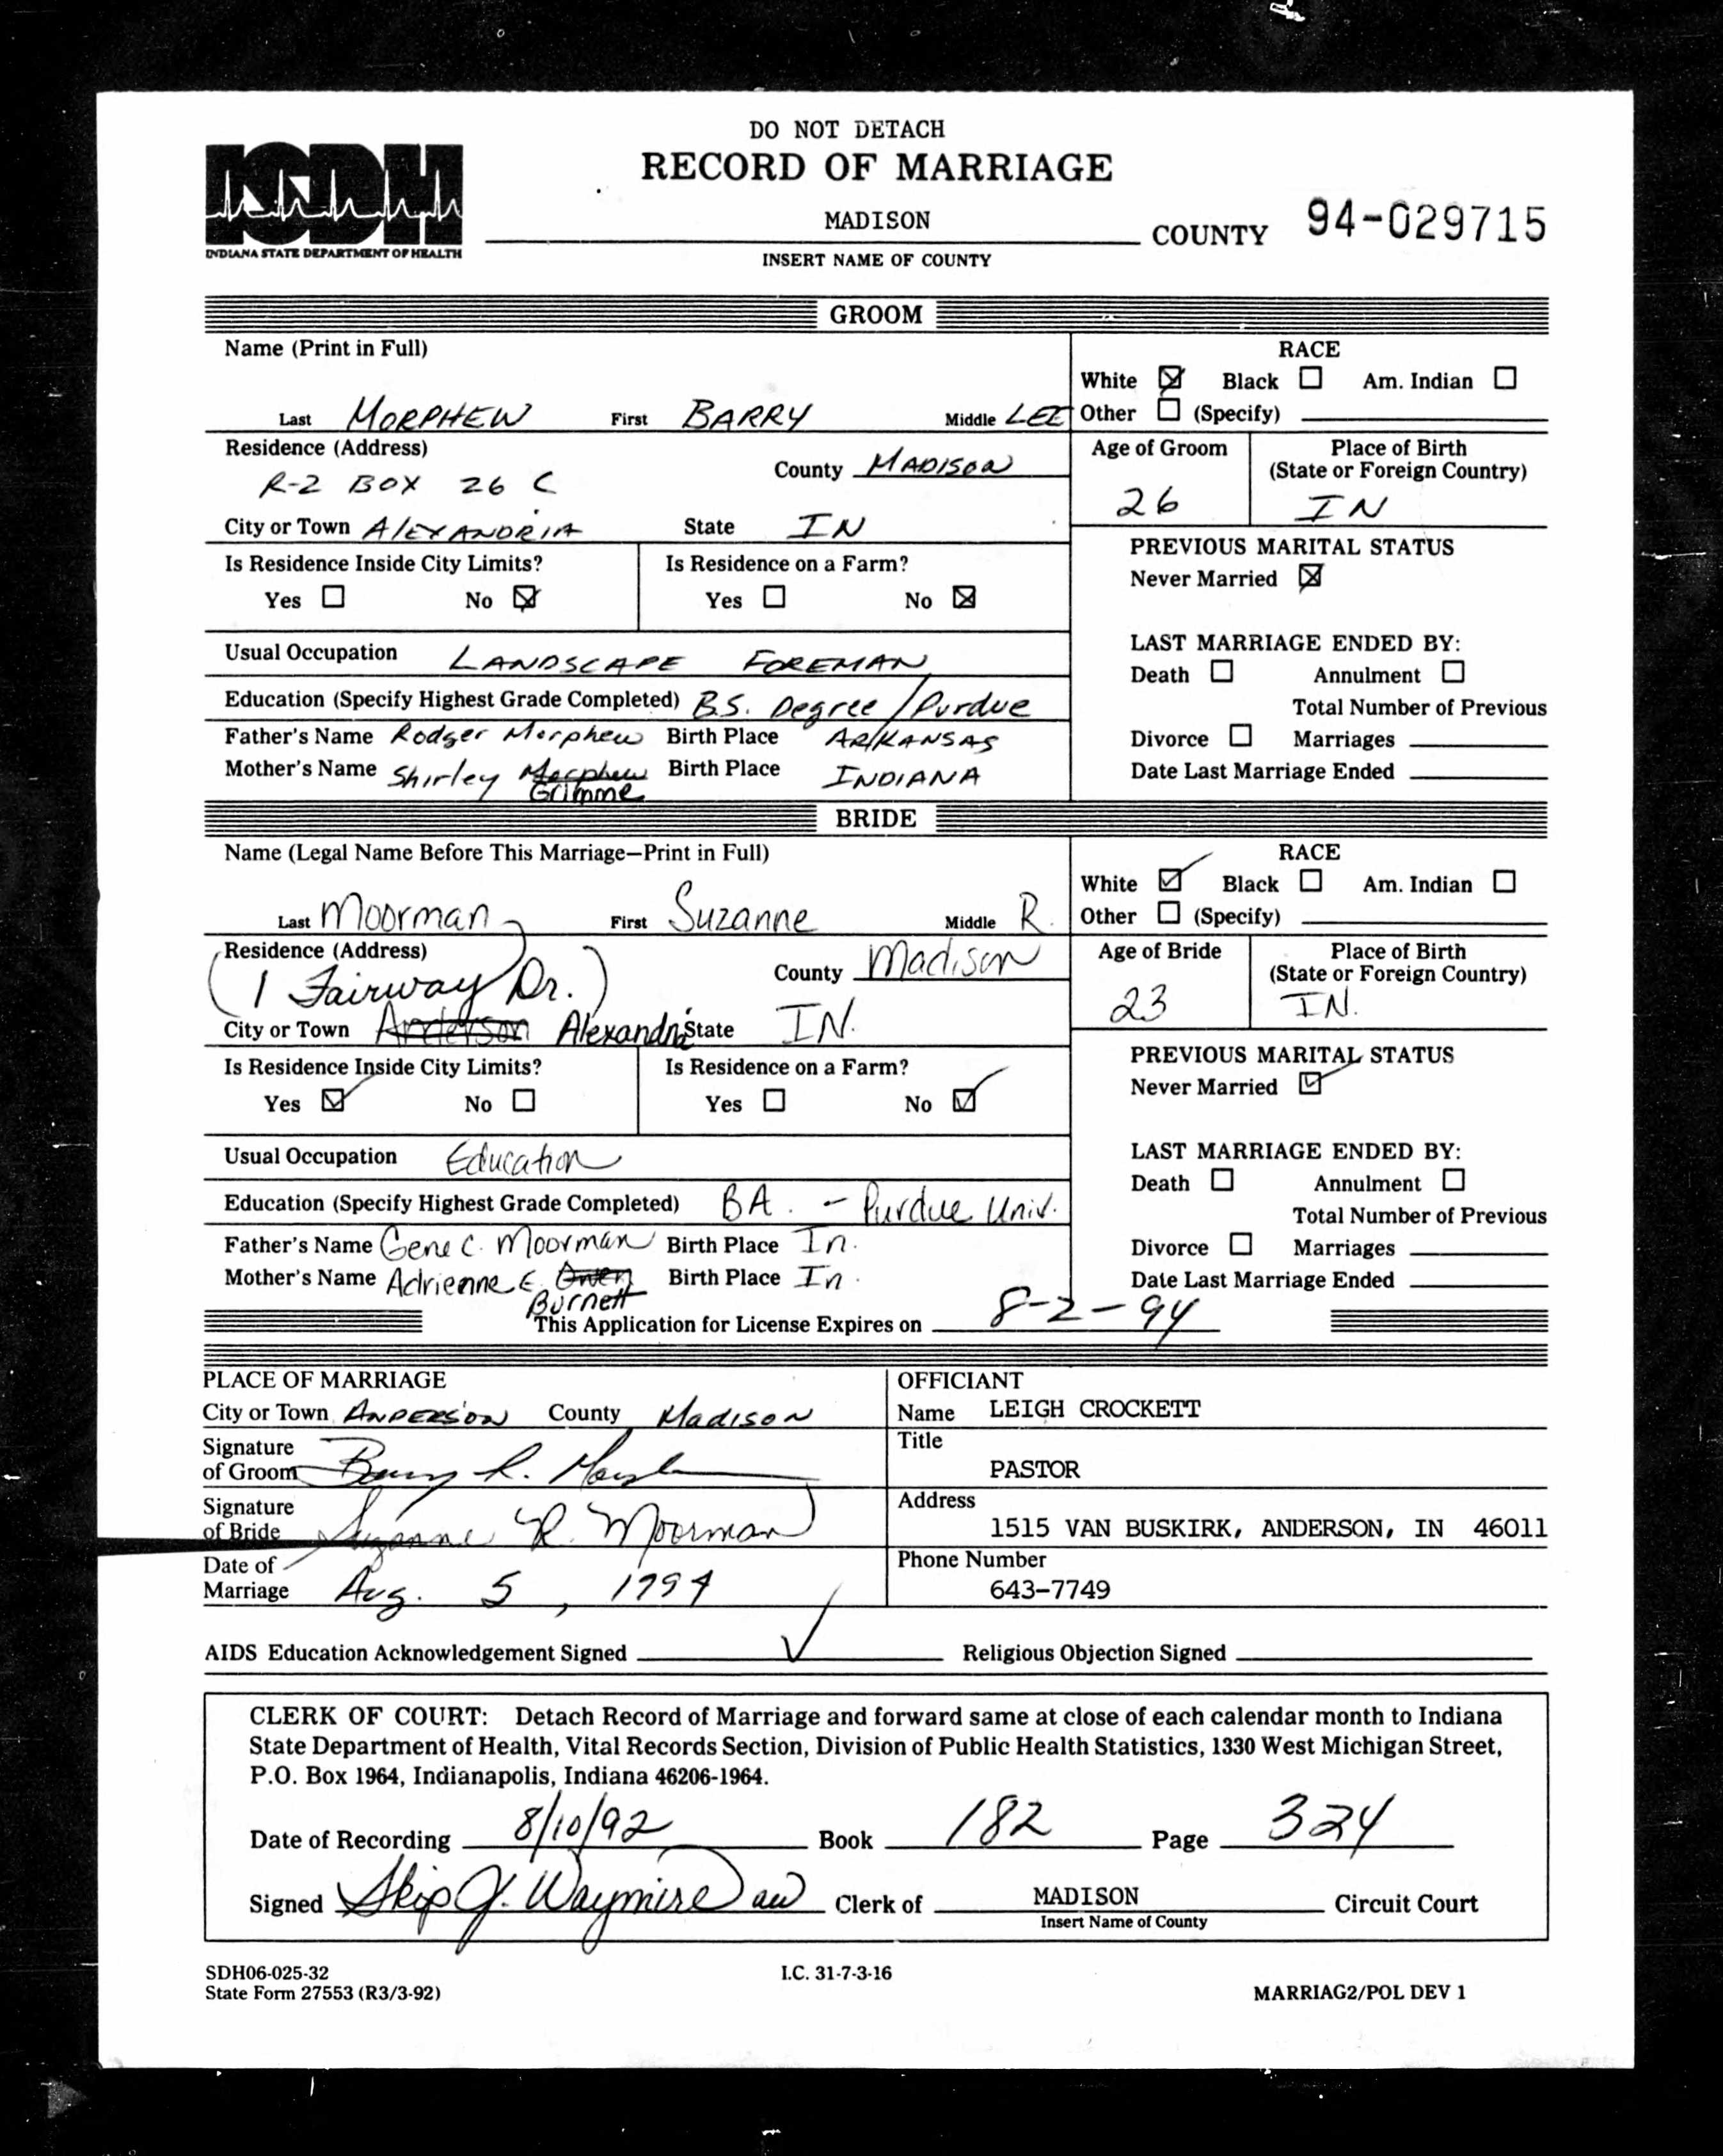 DO NOT DETACH
RECORD OF MARRIAGE
ISDH
INDIANA STATE DEPARTMENT OF HEALTH
MADISON COUNTY 94-029715
INSERT NAME OF COUNTY
GROOM
Name (Print in Full)
Last MORPHEW First BARRY Middle LEE
RACE
White ☒ Black ☐ Am. Indian ☐
Other ☐ (Specify)
Residence (Address)
R-2 BOX 26 C
County MADISON
City or Town ALEXANDRIA State IN
Age of Groom
26
Place of Birth
(State or Foreign Country)
IN
Is Residence Inside City Limits?
Yes ☐ No ☒
Is Residence on a Farm?
Yes ☐ No ☒
PREVIOUS MARITAL STATUS
Never Married ☒
Usual Occupation LANDSCAPE FOREMAN
Education (Specify Highest Grade Completed) B.S. Degree / Purdue
Father's Name Rodger Morphew Birth Place ARKANSAS
Mother's Name Shirley Morphew Birth Place INDIANA
Grimme
LAST MARRIAGE ENDED BY:
Death ☐ Annulment ☐
Total Number of Previous
Divorce ☐ Marriages
Date Last Marriage Ended
BRIDE
Name (Legal Name Before This Marriage—Print in Full)
Last Moorman First Suzanne Middle R.
RACE
White ☑ Black ☐ Am. Indian ☐
Other ☐ (Specify)
Residence (Address)
(1 Fairway Dr.)
County Madison
City or Town Anderson Alexandria State IN.
Age of Bride
23
Place of Birth
(State or Foreign Country)
IN.
Is Residence Inside City Limits?
Yes ☑ No ☐
Is Residence on a Farm?
Yes ☐ No ☑
PREVIOUS MARITAL STATUS
Never Married ☑
Usual Occupation Education
Education (Specify Highest Grade Completed) BA. - Purdue Univ.
Father's Name Gene C. Moorman Birth Place In.
Mother's Name Adrienne E. Owen Birth Place In.
Burnett
LAST MARRIAGE ENDED BY:
Death ☐ Annulment ☐
Total Number of Previous
Divorce ☐ Marriages
Date Last Marriage Ended
This Application for License Expires on 8-2-94
PLACE OF MARRIAGE
City or Town ANDERSON County Madison
Signature
of Groom Barry L. Morphew
Signature
of Bride Suzanne R. Moorman
Date of
Marriage Aug. 5, 1994
OFFICIANT
Name LEIGH CROCKETT
Title
PASTOR
Address
1515 VAN BUSKIRK, ANDERSON, IN 46011
Phone Number
643-7749
AIDS Education Acknowledgement Signed ✓ Religious Objection Signed
CLERK OF COURT: Detach Record of Marriage and forward same at close of each calendar month to Indiana
State Department of Health, Vital Records Section, Division of Public Health Statistics, 1330 West Michigan Street,
P.O. Box 1964, Indianapolis, Indiana 46206-1964.
Date of Recording 8/10/92 Book 182 Page 324
Signed Skip J. Waymire aw Clerk of MADISON Circuit Court
Insert Name of County
SDH06-025-32
State Form 27553 (R3/3-92)
I.C. 31-7-3-16
MARRIAG2/POL DEV 1